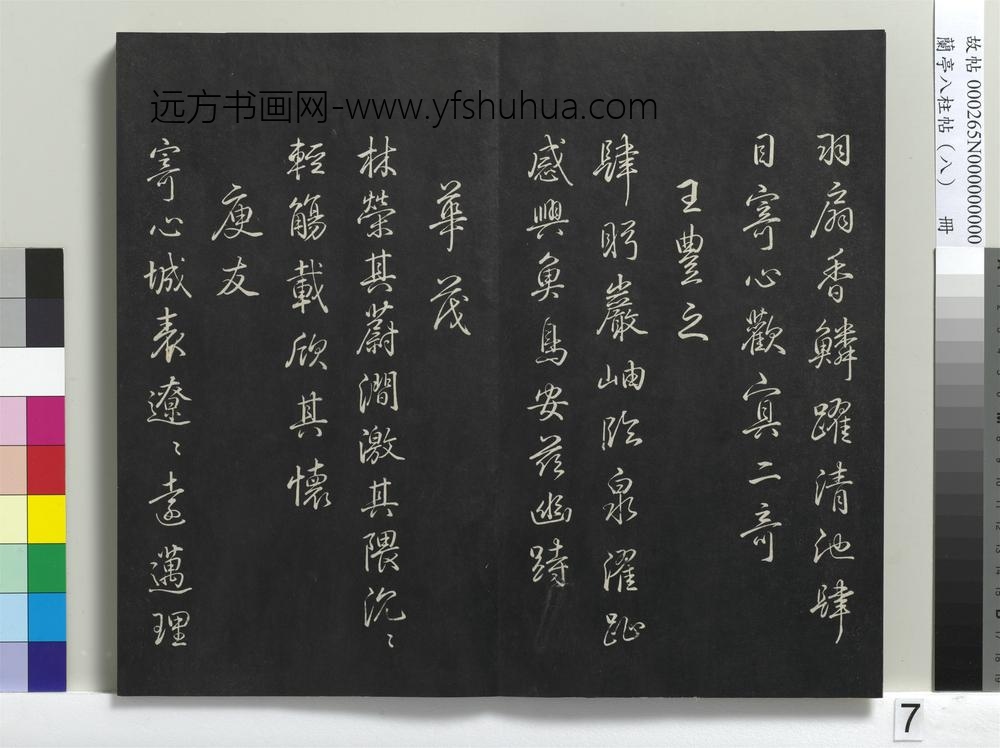 远方书画网-www.yfshuhua.com
羽扇香鱗躍清池肆
目寄心歡冥二奇
王豐之
肆眄巖岫臨泉濯趾
感興魚鳥安茲幽跱
華茂
林榮其蔚澗激其隈汎〻
輕觴載欣其懷
庾友
寄心城表遼〻遠邁理
故帖 000265N000000000
蘭亭八柱帖(八) 冊
7